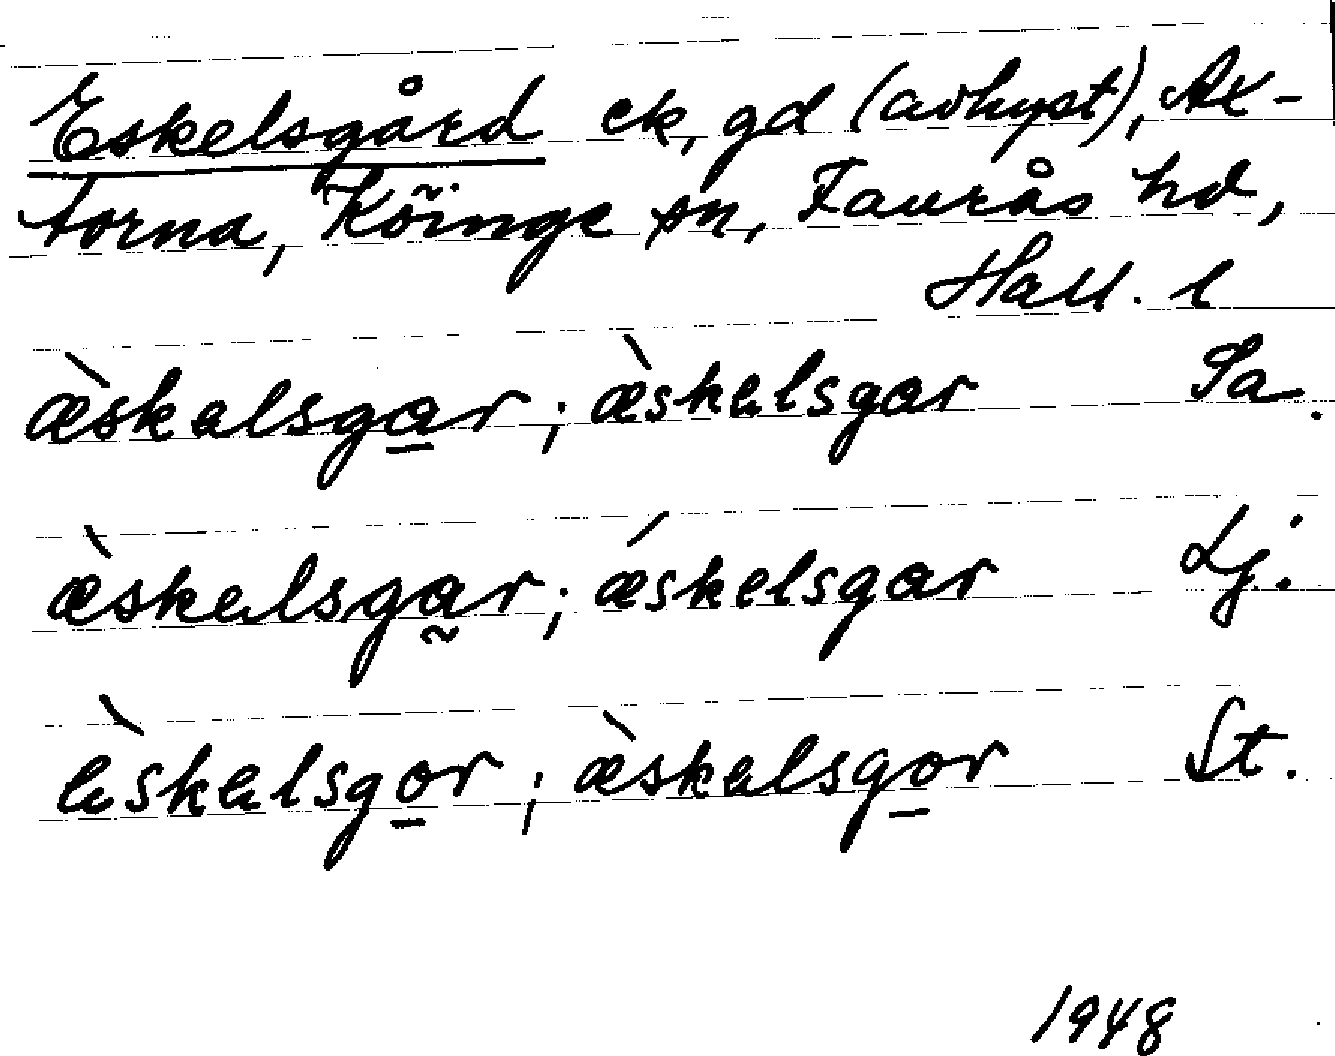 Eskelsgård ck, gd (avhyst), Ax-
torna, Köinge sn, Faurås hd,
Hall. l
æ̀skəlsga̲r; æ̀skəlsgar Sa.
æ̀skəlsga̰r; ǽskelsgar Lj.
ə̀skəlsgo̲r; æ̀skəlsgo̲r St.
1948